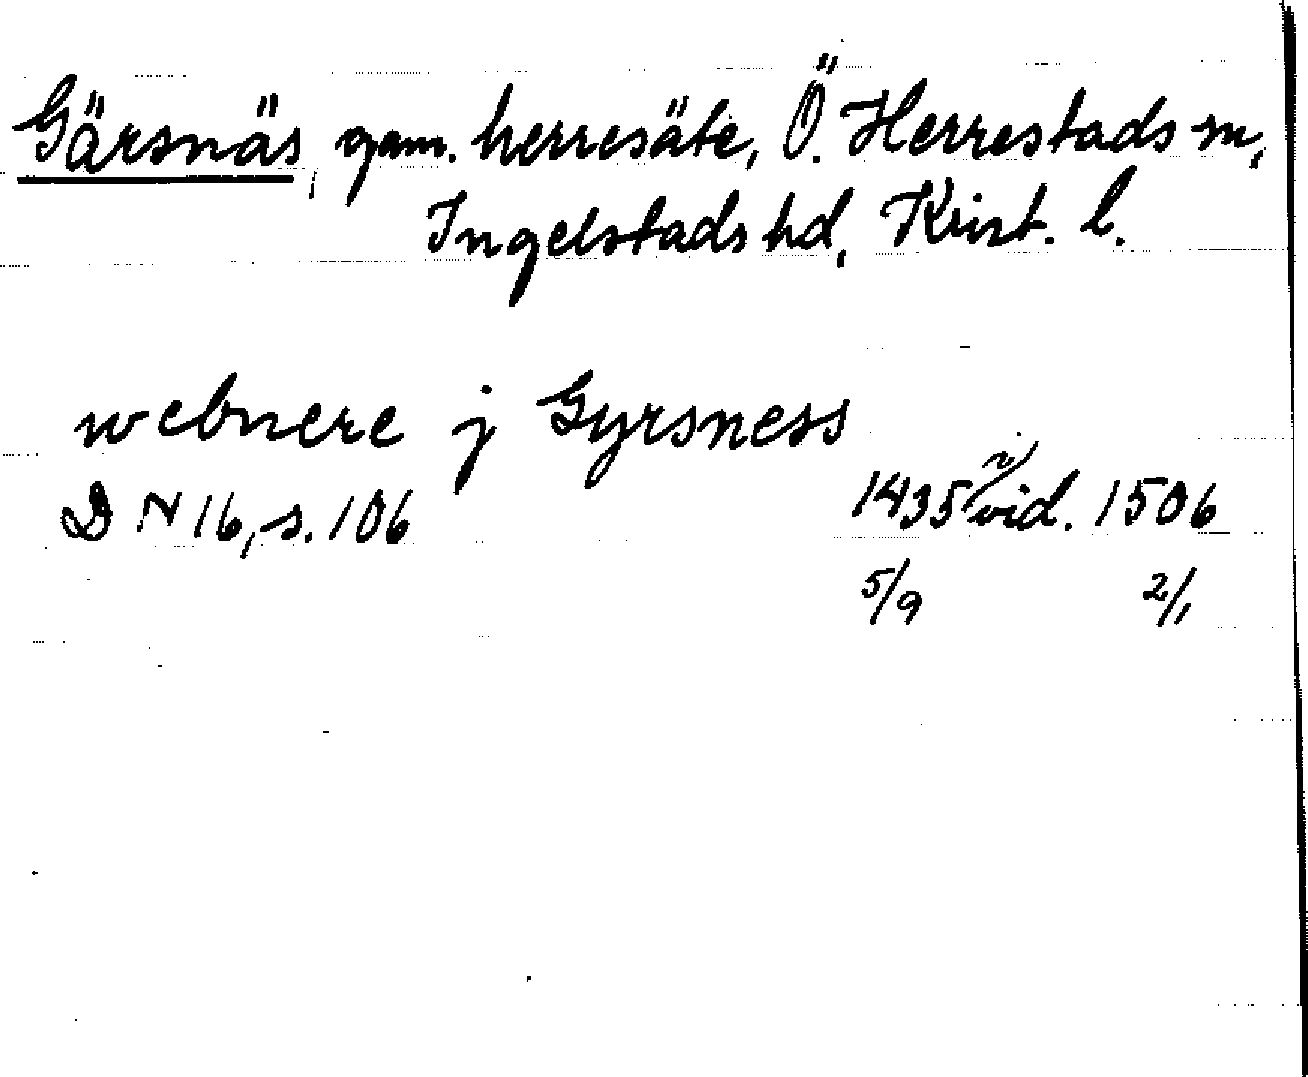 Gärsnäs, gam. herresäte, Ö. Herrestads sn,
Ingelstads hd, Krist. l.
webnere j Gyrsness
DN 16, s. 106 1435 vid. 1506
5/9 2/1